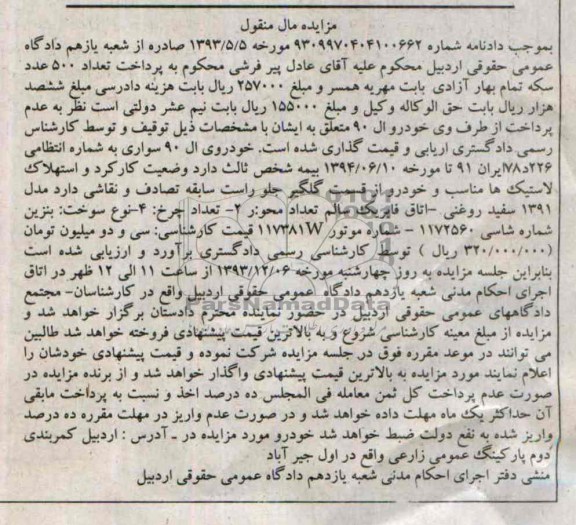 مزایده مال منقول
بموجب دادنامه شماره ۹۳۰۹۹۷۰۴۰۴۱۰۰۶۶۲ مورخه ۱۳۹۳/۵/۵ صادره از شعبه یازدهم دادگاه
عمومی حقوقی اردبیل محکوم علیه آقای عادل پیر فرشی محکوم به پرداخت تعداد ۵۰۰ عدد
سکه تمام بهار آزادی بابت مهریه همسر و مبلغ ۲۵۷۰۰۰ ریال بابت هزینه دادرسی مبلغ ششصد
هزار ریال بابت حق الوکاله وکیل و مبلغ ۱۵۵۰۰۰ ریال بابت نیم عشر دولتی است نظر به عدم
پرداخت از طرف وی خودرو ال ۹۰ متعلق به ایشان با مشخصات ذیل توقیف و توسط کارشناس
رسمی دادگستری اریابی و قیمت گذاری شده است. خودروی ال ۹۰ سواری به شماره انتظامی
۲۲۶د۷۸ایران ۹۱ تا مورخه ۱۳۹۴/۰۶/۱۰ بیمه شخص ثالث دارد وضعیت کارکرد و استهلاک
لاستیک ها مناسب و خودرو از قسمت گلگیر جلو راست سابقه تصادف و نقاشی دارد مدل
۱۳۹۱ سفید روغنی -اتاق فابریک سالم تعداد محور: ۲- تعداد چرخ: ۴-نوع سوخت: بنزین
شماره شاسی ۱۱۷۲۵۶۰ - شماره موتور ۱۱۷۳۸۱W قیمت کارشناسی: سی و دو میلیون تومان
(۳۲۰/۰۰۰/۰۰۰ ریال ) توسط کارشناسی رسمی دادگستری برآورد و ارزیابی شده است
بنابراین جلسه مزایده به روز چهارشنبه مورخه ۱۳۹۳/۱۲/۰۶ از ساعت ۱۱ الی ۱۲ ظهر در اتاق
اجرای احکام مدنی شعبه یازدهم دادگاه عمومی حقوقی اردبیل واقع در کارشناسان- مجتمع
دادگاههای عمومی حقوقی اردبیل در حضور نماینده محترم دادستان برگزار خواهد شد و
ParsNamadData
مزایده از مبلغ معینه کارشناسی شروع و به بالاترین قیمت پیشنهادی فروخته خواهد شد طالبین
می توانند در موعد مقرره فوق در جلسه مزایده شرکت نموده و قیمت پیشنهادی خودشان را
اعلام نمایند مورد مزایده به بالاترین قیمت پیشنهادی واگذار خواهد شد و از برنده مزایده در
صورت عدم پرداخت کل ثمن معامله فی المجلس ده درصد اخذ و نسبت به پرداخت مابقی
آن حداکثر یک ماه مهلت داده خواهد شد و در صورت عدم واریز در مهلت مقرره ده درصد
واریز شده به نفع دولت ضبط خواهد شد خودرو مورد مزایده در ـ آدرس : اردبیل کمربندی
دوم پارکینگ عمومی زارعی واقع در اول جیر آباد
منشی دفتر اجرای احکام مدنی شعبه یازدهم دادگاه عمومی حقوقی اردبیل